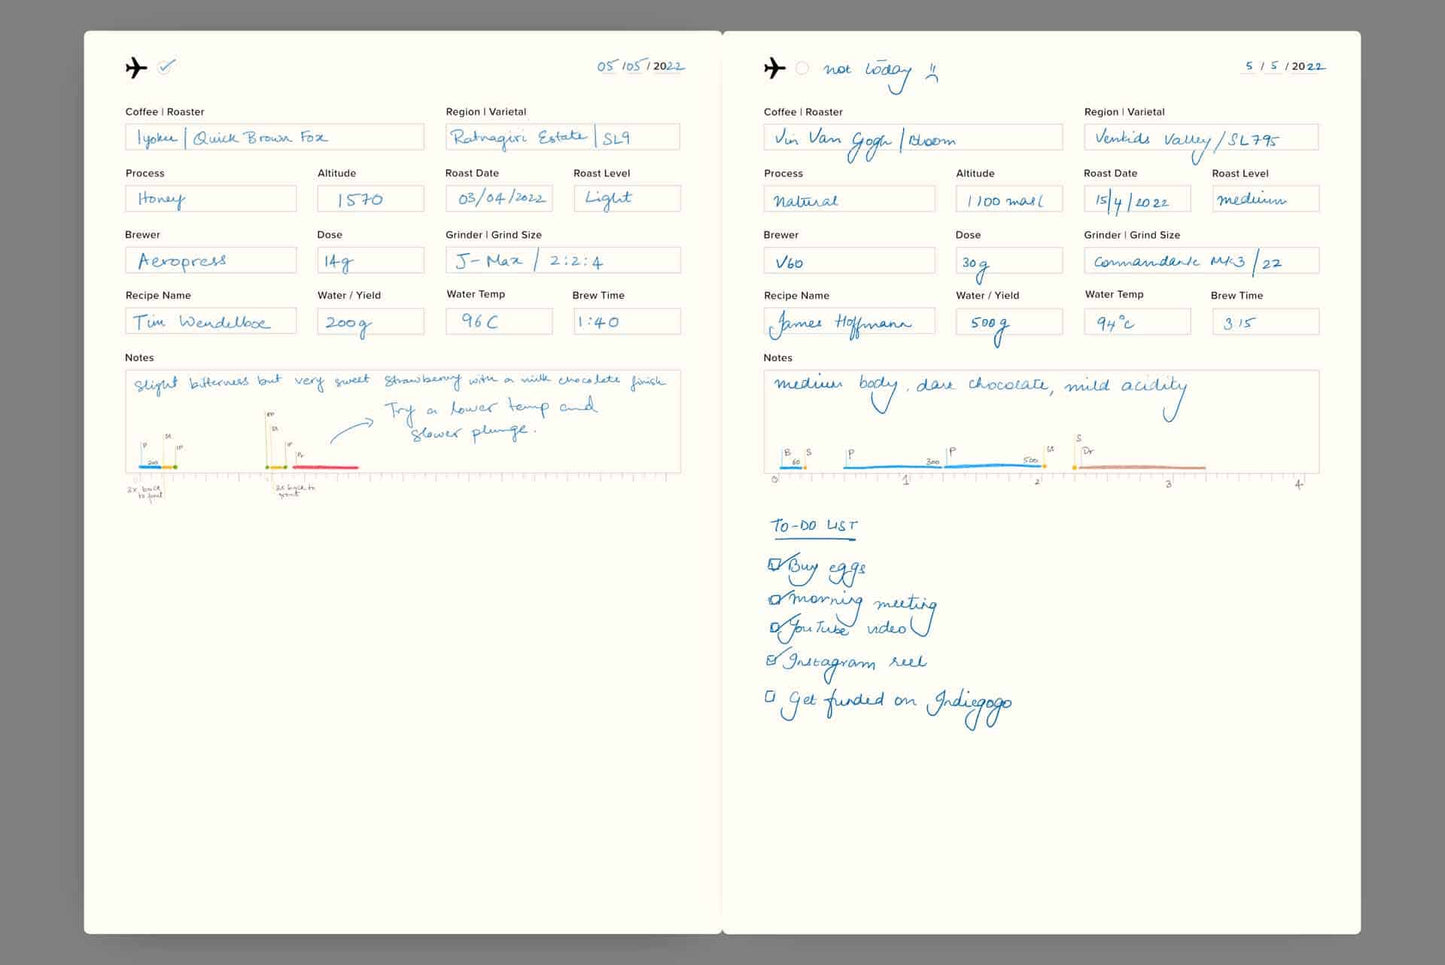 05/05/2022
Coffee | Roaster
Region | Varietal
Iyoku | Quick Brown Fox
Ratnagiri Estate | SL9
Process
Altitude
Roast Date
Roast Level
Honey
1570
03/04/2022
Light
Brewer
Dose
Grinder | Grind Size
Aeropress
14g
J-Max / 2:2:4
Recipe Name
Water / Yield
Water Temp
Brew Time
Tim Wendelboe
200g
96C
1:40
Notes
slight bitterness but very sweet strawberry with a milk chocolate finish
Try a lower temp and
slower plunge.
P
St
200
St
Pr
2x back
to front
2x back to
front
not today
5/5/2022
Coffee | Roaster
Region | Varietal
Vin Van Gogh / Bloom
Valley / SL795
Process
Altitude
Roast Date
Roast Level
Natural
1100 masl
15/4/2022
medium
Brewer
Dose
Grinder | Grind Size
V60
30g
Commandante MK3 / 22
Recipe Name
Water / Yield
Water Temp
Brew Time
James Hoffmann
500g
94°C
315
Notes
medium body, dark chocolate, mild acidity
B
60
S
P
300
P
500
St
S
Dr
0
1
2
3
4
TO-DO LIST
Buy eggs
morning meeting
YouTube video
Instagram reel
Get funded on Indiegogo